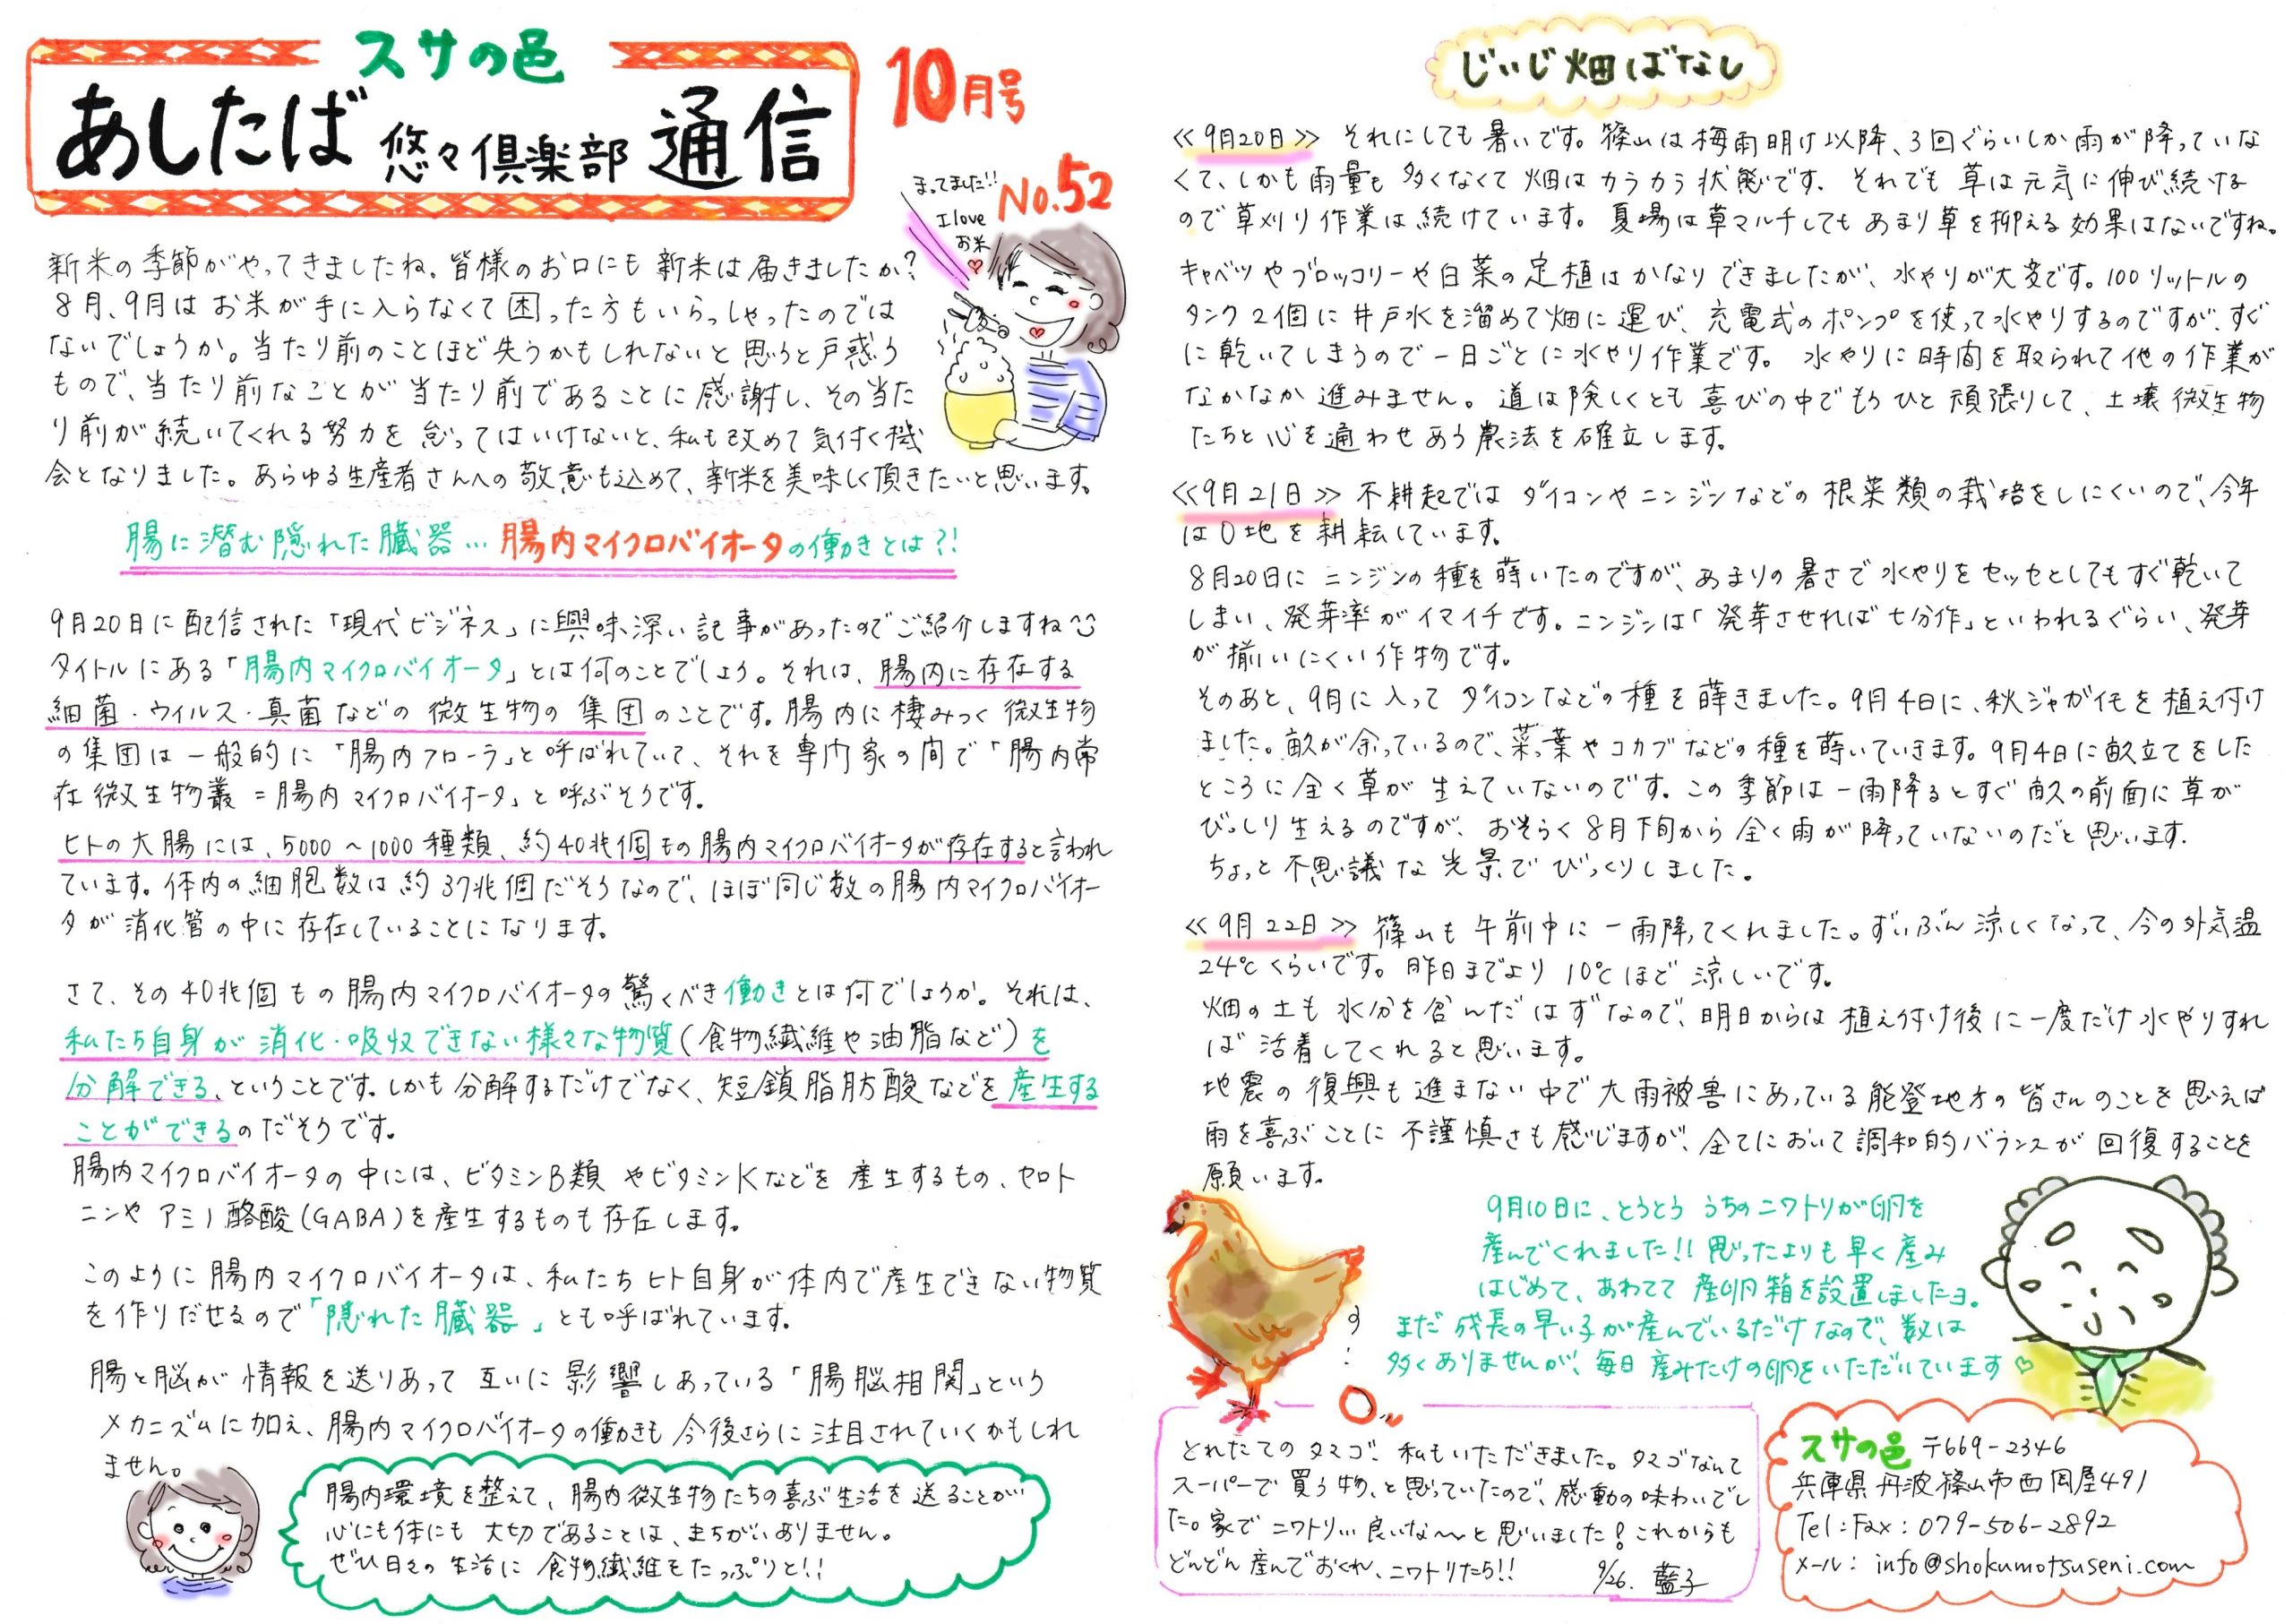 スサの邑
あしたば 悠々倶楽部 通信
10月号
No.52
まってました!!
I love
お米
新米の季節がやってきましたね。皆様のお口にも新米は届きましたか?
8月、9月はお米が手に入らなくて困った方もいらっしゃったのでは
ないでしょうか。当たり前のことほど失うかもしれないと思うと戸惑う
もので、当たり前なことが当たり前であることに感謝し、その当た
り前が続いてくれる努力を怠ってはいけないと、私も改めて気付く機
会となりました。あらゆる生産者さんへの敬意も込めて、新米を美味しく頂きたいと思います。
腸に潜む隠れた臓器…腸内マイクロバイオータの働きとは?!
9月20日に配信された「現代ビジネス」に興味深い記事があったのでご紹介しますね
タイトルにある「腸内マイクロバイオータ」とは何のことでしょう。それは、腸内に存在する
細菌・ウイルス・真菌などの微生物の集団のことです。腸内に棲みつく微生物
の集団は一般的に「腸内フローラ」と呼ばれていて、それを専門家の間で「腸内常
在微生物叢=腸内マイクロバイオータ」と呼ぶそうです。
ヒトの大腸には、5000~1000種類、約40兆個もの腸内マイクロバイオータが存在すると言われ
ています。体内の細胞数は約37兆個だそうなので、ほぼ同じ数の腸内マイクロバイオー
タが消化管の中に存在していることになります。
さて、その40兆個もの腸内マイクロバイオータの驚くべき働きとは何でしょうか。それは、
私たち自身が消化・吸収できない様々な物質(食物繊維や油脂など)を
分解できる、ということです。しかも分解するだけでなく、短鎖脂肪酸などを産生する
ことができるのだそうです。
腸内マイクロバイオータの中には、ビタミンB類やビタミンKなどを産生するもの、セロト
ニンやアミノ酪酸(GABA)を産生するものも存在します。
このように腸内マイクロバイオータは、私たちヒト自身が体内で産生できない物質
を作りだせるので「隠れた臓器」とも呼ばれています。
腸と脳が情報を送りあって互いに影響しあっている「腸脳相関」という
メカニズムに加え、腸内マイクロバイオータの働きも今後さらに注目されていくかもしれ
ません。
腸内環境を整えて、腸内微生物たちの喜ぶ生活を送ることが
心にも体にも大切であることは、まちがいありません。
ぜひ日々の生活に食物繊維をたっぷりと!!
じいじ畑ばなし
≪9月20日≫ それにしても暑いです。篠山は梅雨明け以降、3回ぐらいしか雨が降っていな
くて、しかも雨量も多くなくて畑はカラカラ状態です。それでも草は元気に伸び続ける
ので草刈り作業は続けています。夏場は草マルチしてもあまり草を抑える効果はないですね。
キャベツやブロッコリーや白菜の定植はかなりできましたが、水やりが大変です。100リットルの
タンク2個に井戸水を溜めて畑に運び、充電式のポンプを使って水やりするのですが、すぐ
に乾いてしまうので一日ごとに水やり作業です。水やりに時間を取られて他の作業が
なかなか進みません。道は険しくとも喜びの中でもうひと頑張りして、土壌微生物
たちと心を通わせあう農法を確立します。
≪9月21日≫ 不耕起ではダイコンやニンジンなどの根菜類の栽培をしにくいので、今年
は0地を耕耘しています。
8月20日にニンジンの種を蒔いたのですが、あまりの暑さで水やりをセッセとしてもすぐ乾いて
しまい、発芽率がイマイチです。ニンジンは「発芽させれば七分作」といわれるぐらい、発芽
が揃いにくい作物です。
そのあと、9月に入ってダイコンなどの種を蒔きました。9月4日に、秋ジャガイモを植え付け
ました。畝が余っているので、菜っ葉やコカブなどの種を蒔いていきます。9月4日に畝立てをした
ところに全く草が生えていないのです。この季節は一雨降るとすぐ畝の前面に草が
びっしり生えるのですが、おそらく8月下旬から全く雨が降っていないのだと思います。
ちょっと不思議な光景でびっくりしました。
≪9月22日≫ 篠山も午前中に一雨降ってくれました。ずいぶん涼しくなって、今の外気温
24℃くらいです。昨日までより10℃ほど涼しいです。
畑の土も水分を含んだはずなので、明日からは植え付け後に一度だけ水やりすれ
ば活着してくれると思います。
地震の復興も進まない中で大雨被害にあっている能登地方の皆さんのことを思えば
雨を喜ぶことに不謹慎さも感じますが、全てにおいて調和的バランスが回復することを
願います。
9月10日に、とうとううちのニワトリが卵を
産んでくれました!!思ったよりも早く産み
はじめて、あわてて産卵箱を設置しましたヨ。
まだ成長の早い子が産んでいるだけなので、数は
多くありませんが、毎日産みたけの卵をいただいています♡
とれたてのタマゴ、私もいただきました。タマゴなんて
スーパーで買う物、と思っていたので、感動の味わいでし
た。家でニワトリ…良いな~と思いました!これからも
どんどん産んでおくれ、ニワトリたち!! 9/26. 藍子
スサの邑 〒669-2346
兵庫県丹波篠山市西岡屋491
Tel:Fax:079-506-2892
メール:info@shokumotsuseni.com